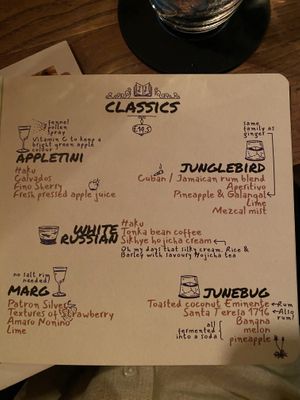 CLASSICS
£19.5
fennel
pollen
spray
Vitamin C to keep a
bright green apple
colour
APPLETINI
Haku
Calvados
Fino Sherry
Fresh pressed apple juice
same
family as
ginger
JUNGLEBIRD
Cuban / Jamaican rum blend
Aperitivo
Pineapple & Galangal
Lime
Mezcal mist
WHITE
RUSSIAN
Haku
Tonka bean coffee
Sikhye hojicha cream
Oh my days that silky cream. Rice &
Barley with savoury Hojicha tea
no salt rim
needed!
MARG
Patron Silver
Textures of Strawberry
Amaro Nonino
Lime
JUNEBUG
Toasted coconut Eminente
Rum
Santa Teresa 1796
Also
rum!
Banana
melon
pineapple
all
fermented
into a soda